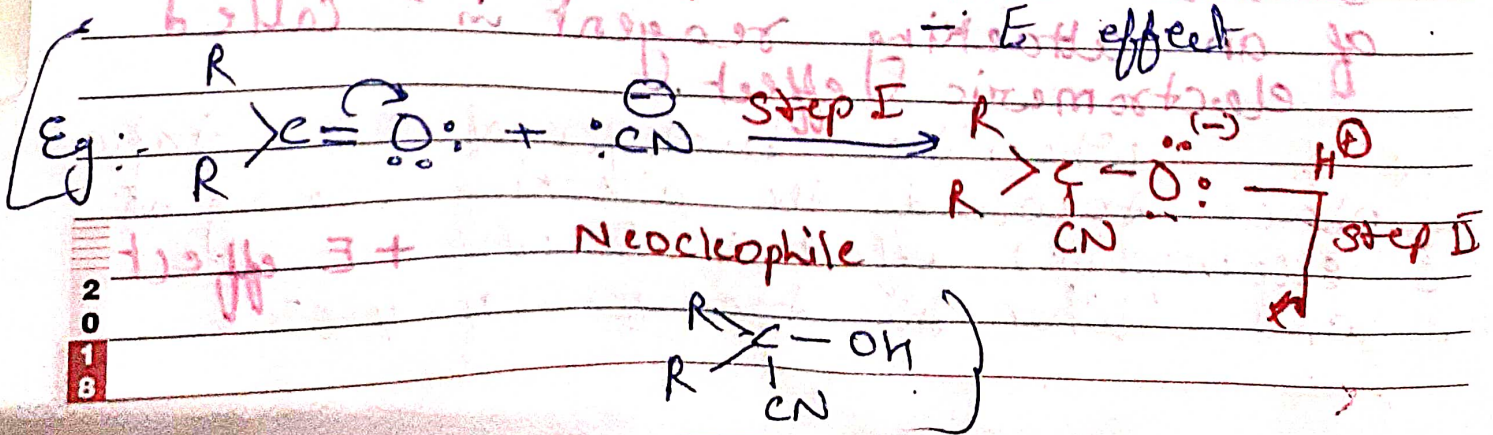 – E effect
Eg :- R R >C=O: + :CN⊖ Step I → R R >C–O:(-) CN H⊕ Step II
Neocleophile
R R C – OH CN
+ E effect
2018